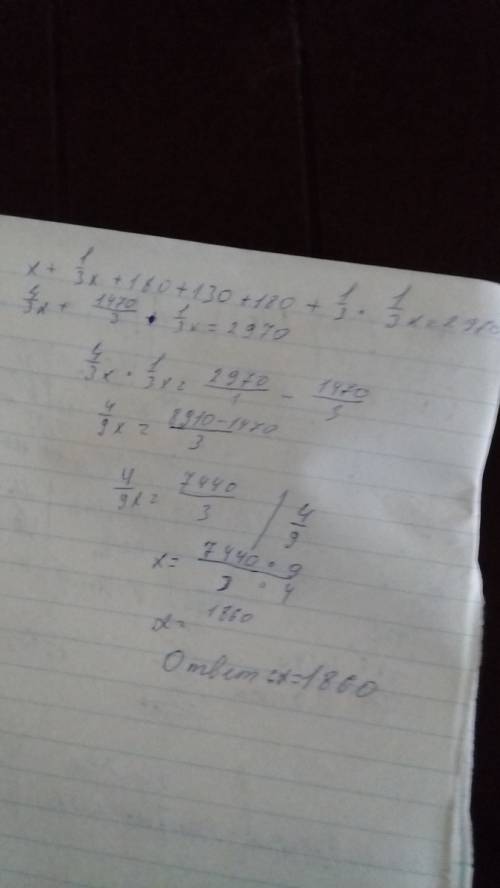 x + 1/3x + 180 + 130 + 180 + 1/3 · 1/3x = 2970
4/3x + 1470/3 · 1/3x = 2970
4/3x · 1/3x = 2970/1 - 1470/3
4/9x = 8910-1470/3
4/9x = 7440/3 / 4/9
x = 7440 · 9/3 · 4
x = 1860
Ответ: x=1860